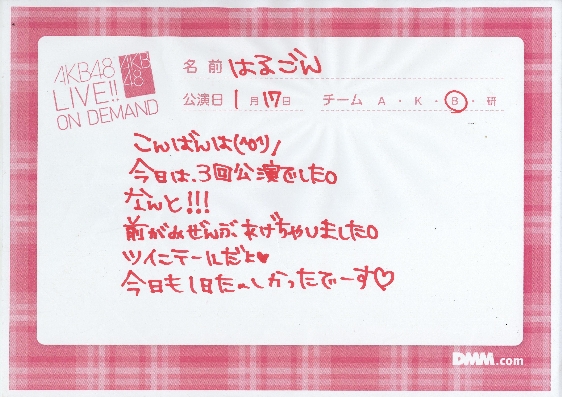 AKB48
LIVE!!
ON DEMAND
AKB
48
名前 はるごん
公演日 1月17日 チーム A・K・B・研
こんばんは(^o^)/
今日は、3回公演でした。
なんと!!!
前がみぜんぶあげちゃいました。
ツインテールだよ♥
今日も1日たのしかったでーす♡
DMM.com